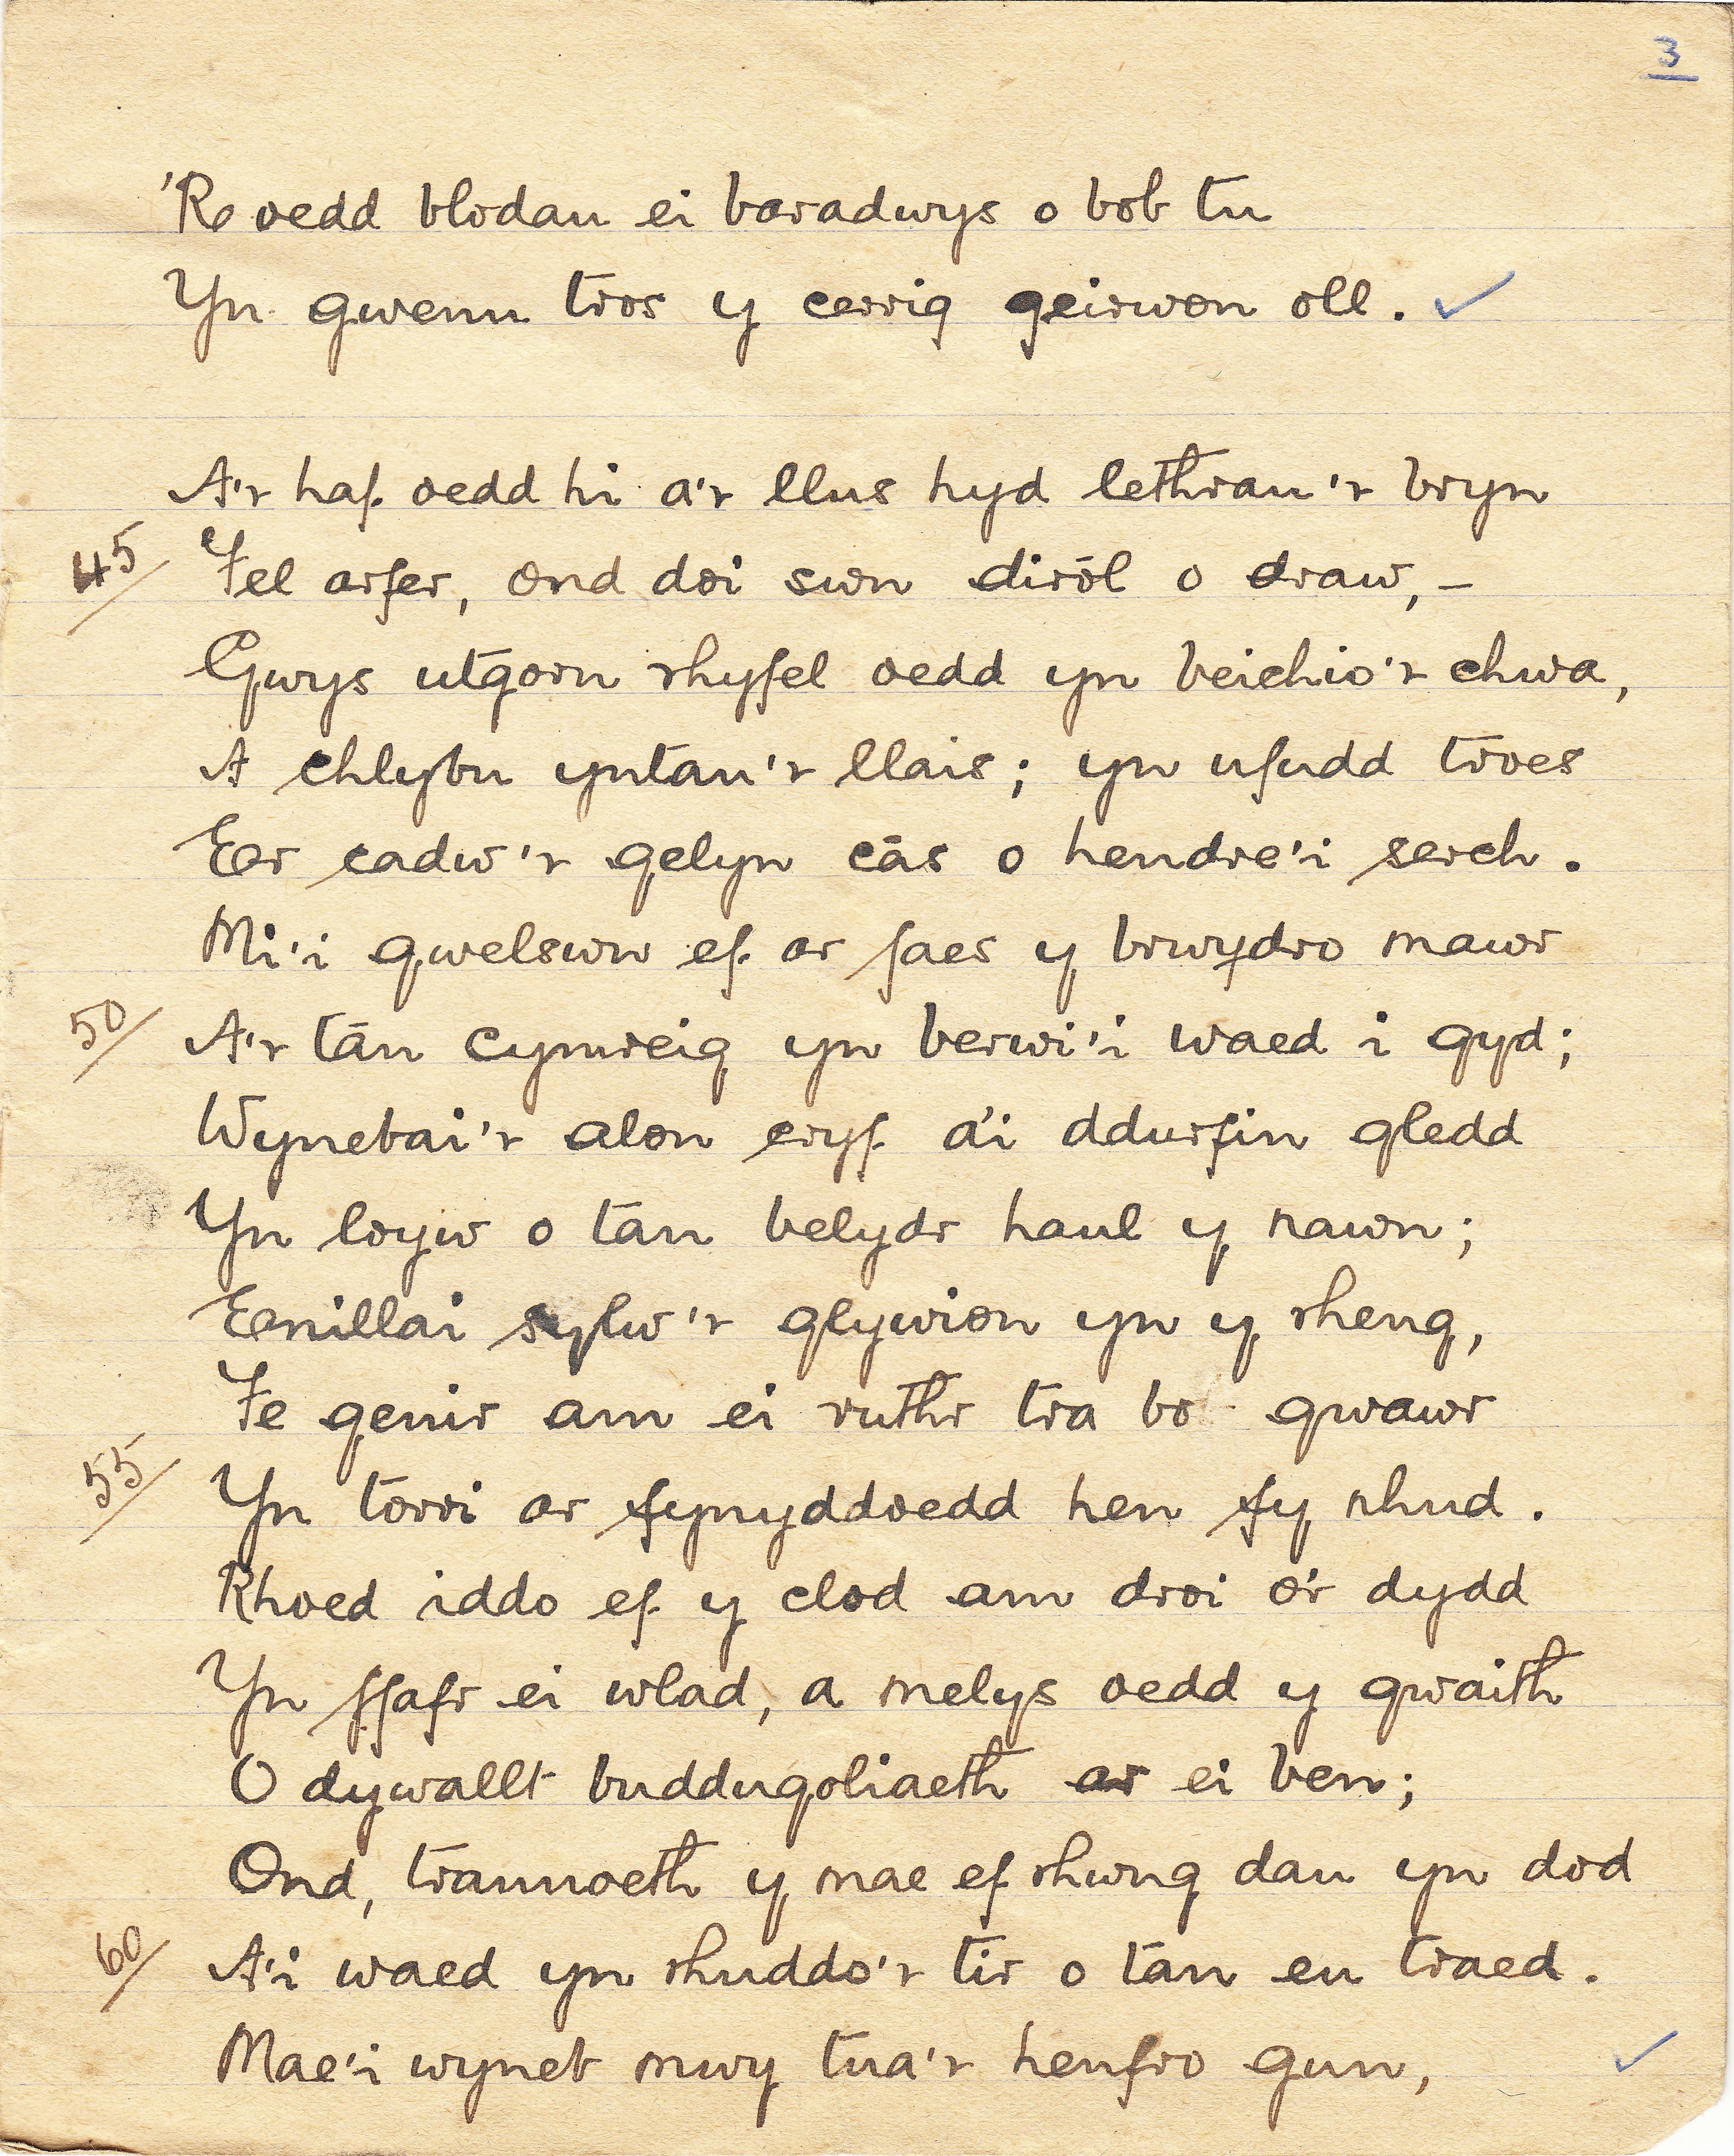 3
'Ro oedd blodau ei baradwys o bob tu
Yn gwenu tros y cerrig geirwon oll. ✓
A'r haf oedd hi a'r llus hyd lethrau'r bryn
45/ Fel arfer, ond dôi swn dirôl o draw, –
Gwys utgorn rhyfel oedd yn beichio'r chwa,
A chlybu yntau'r llais; yn ufudd troes
Er cadw'r gelyn câs o hendre'i serch.
Mi'i gwelswn ef ar faes y brwydro mawr
50/ A'r tân Cymreig yn berwi'i waed i gyd;
Wynebai'r alon cryf a'i ddurfin gledd
Yn loyw o tan belydr haul y nawn;
Enillai sylw'r glywion yn y rheng,
Fe genir am ei ruthr tra bo gwawr
55/ Yn torri ar fynyddoedd hen fy nhud.
Rhoed iddo ef y clod am droi o'r dydd
Yn ffafr ei wlad, a melys oedd y gwaith
O dywallt buddugoliaeth ar ei ben;
Ond, trannoeth y mae ef rhwng dau yn dod
60/ A'i waed yn rhuddo'r tir o tan eu traed.
Mae'i wyneb mwy tua'r henfro gun, ✓